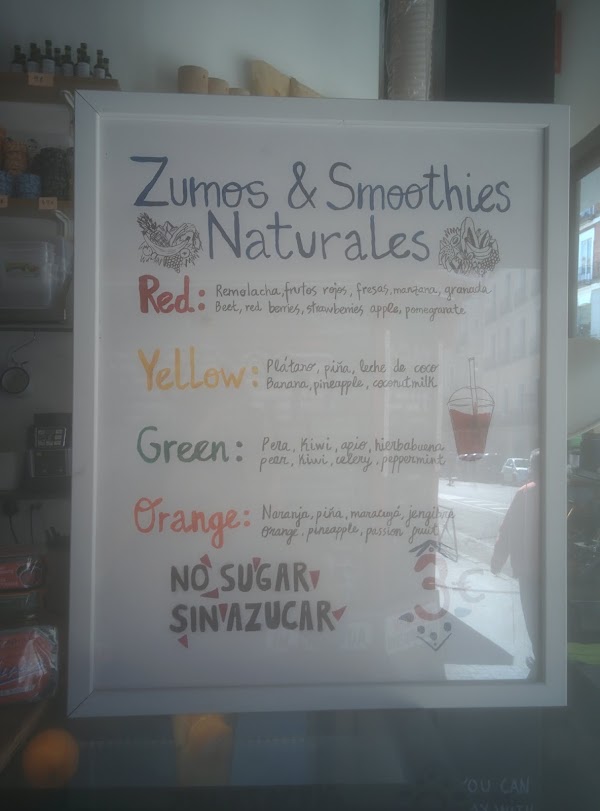 Zumos & Smoothies
Naturales
Red: Remolacha, frutos rojos, fresas, manzana, granada
Beet, red berries, strawberries apple, pomegranate
Yellow: Plátano, piña, leche de coco
Banana, pineapple, coconut milk
Green: Pera, Kiwi, apio, hierbabuena
pear, Kiwi, celery, peppermint
Orange: Naranja, piña, maracuyá, jengibre
Orange, pineapple, passion fruit
NO SUGAR
SIN AZUCAR
3€
YOU CAN